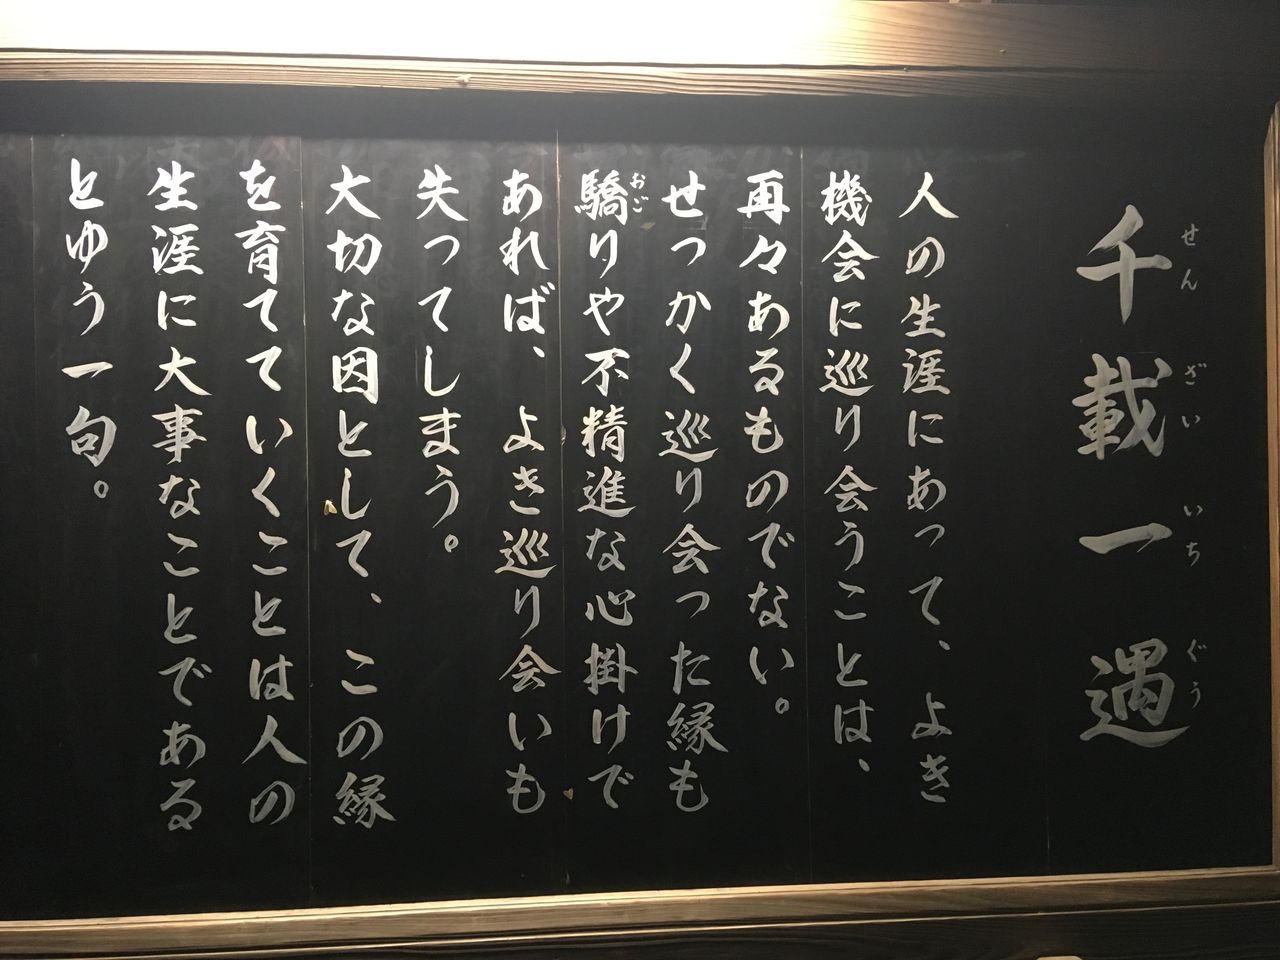 千載一遇
せんざいいちぐう
人の生涯にあって、よき
機会に巡り会うことは、
再々あるものでない。
せっかく巡り会った縁も
驕りや不精進な心掛けで
おご
あれば、よき巡り会いも
失ってしまう。
大切な因として、この縁
を育てていくことは人の
生涯に大事なことである
とゆう一句。